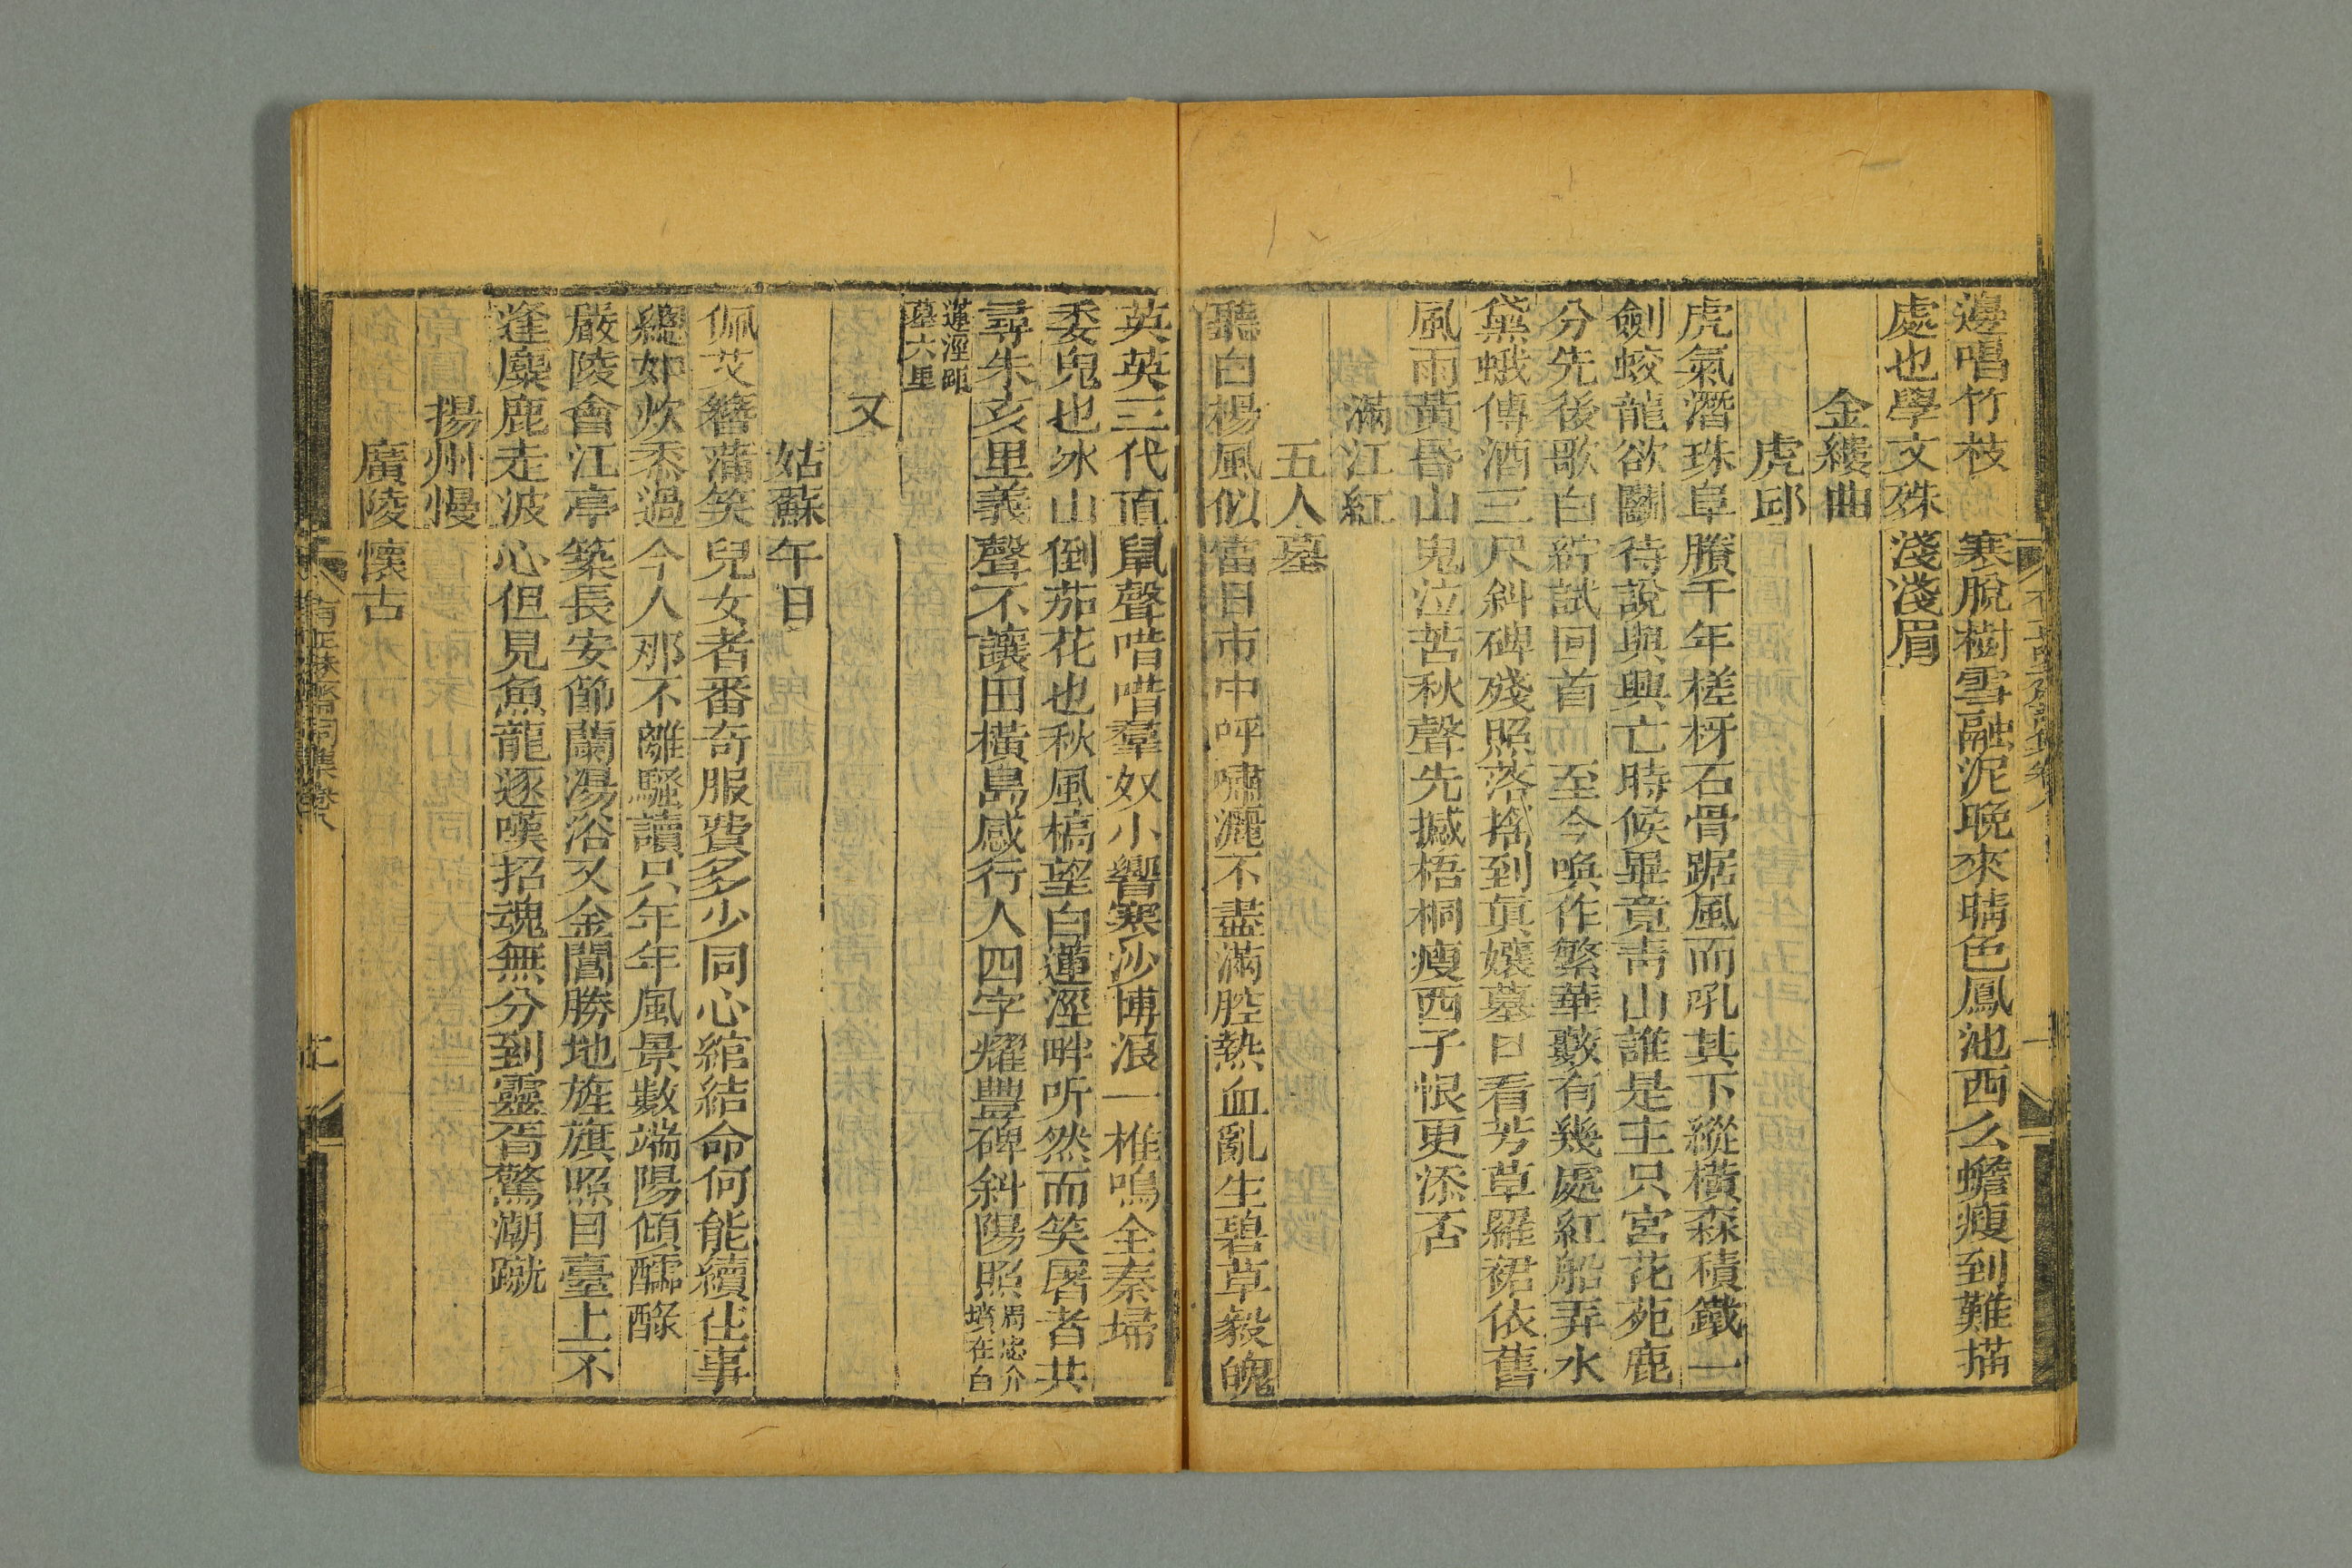 邊唱竹枝　寒脫樹雪融泥晚來晴色鳳池西么蟾瘦到難描
處也學文殊淺淺眉
金縷曲
虎邱
虎氣潛珠阜賸千年槎枒石骨踞風而吼其下縱橫森積鐵一
劍蛟龍欲鬭待說與興亡時候畢竟青山誰是主只宮花苑鹿
分先後歌白紵試回首　至今喚作繁華藪有幾處紅船弄水
黛蛾傳酒三尺斜碑殘照落捁到眞孃墓曰看芳草羅裙依舊
風雨黃昏山鬼泣苦秋聲先撼梧桐瘦西子恨更添否
滿江紅
五人墓
聽白楊風似當日市中呼嘯灑不盡滿腔熱血亂生碧草毅魄
英英三代直鼠聲唶唶羣奴小響寒沙博浪一椎鳴全秦埽
委鬼也冰山倒茄花也秋風槁望白蓮涇畔听然而笑屠者共
尋朱亥里義聲不讓田橫島感行人四字耀豐碑斜陽照周忠介墳在白
蓮涇距墓六里
又
姑蘇午日
佩艾簪蒲笑兒女者番奇服費多少同心綰結命何能續往事
總如炊黍過今人那不離騷讀只年年風景數端陽傾醽醁
嚴陵會江亭築長安節蘭湯浴又金閶勝地旌旗照目臺上不
逢麋鹿走波心但見魚龍逐嘆招魂無分到靈胥驚潮蹴
揚州慢
廣陵懷古
有正味齋詞集卷八